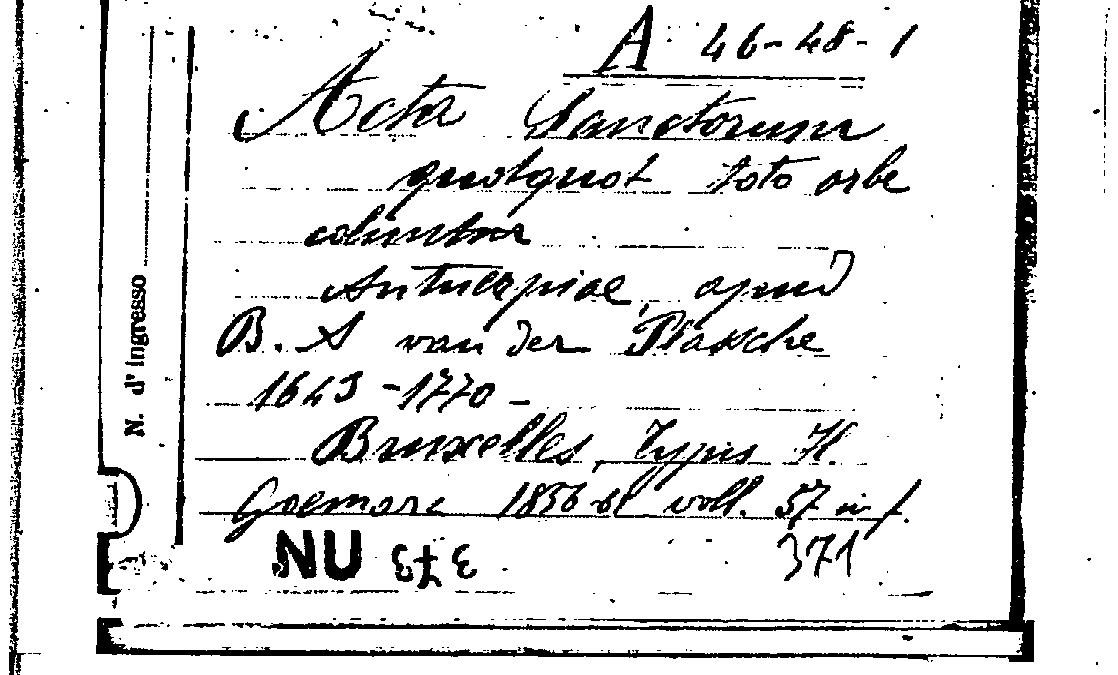 A 46-48-1
Acta Sanctorum
quotquot toto orbe
coluntur
Antuerpiae, apud
B. A van der Plassche
1643-1770-
Bruxelles, typis H.
Goemare 1856-61 voll. 57 in f.
NU 373 371
N. d'ingresso